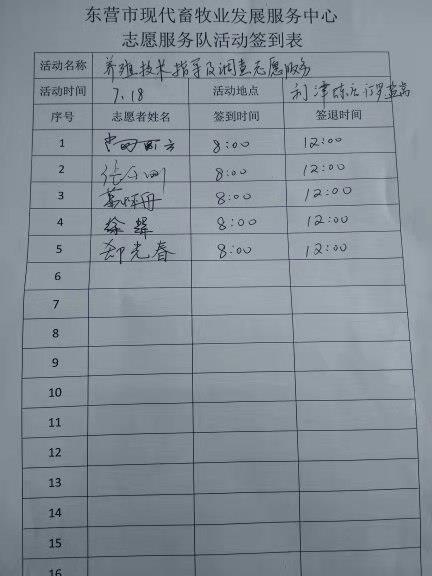 东营市现代畜牧业发展服务中心
志愿服务队活动签到表
活动名称 养殖技术指导及调查志愿服务
活动时间 7.18 活动地点 利津陈庄
序号 志愿者姓名 签到时间 签退时间
1 8:00 12:00
2 8:00 12:00
3 8:00 12:00
4 徐 8:00 12:00
5 郑光春 8:00 12:00
6
7
8
9
10
11
12
13
14
15
16